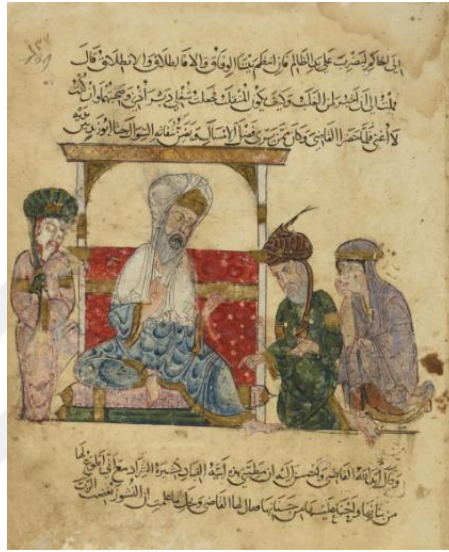 إلى الحاكم ليضرب على يد الظالم فإن انتظم بيننا الوفاق وإلا فالطلاق والانطلاق قال
فملت إلى أن أخبر لمن الغلب وكيف يكون المنقلب فجعلت شغلي دبر أذني وصحبتهما وإن كنت
لا أغني فلما حضرا القاضي وكان ممن يرى فضل الإمساك ويضن بنفاثة السواك جثا أبو زيد بين يديه
وقال أيد الله القاضي وأحسن إليه إن مطيتي هذه أبية القياد كثيرة الشراد مع أني أطوع لها
من بنانها وأحنى عليها من جنانها فقال لها القاضي ويحك أما علمت أن النشوز يغضب الرب